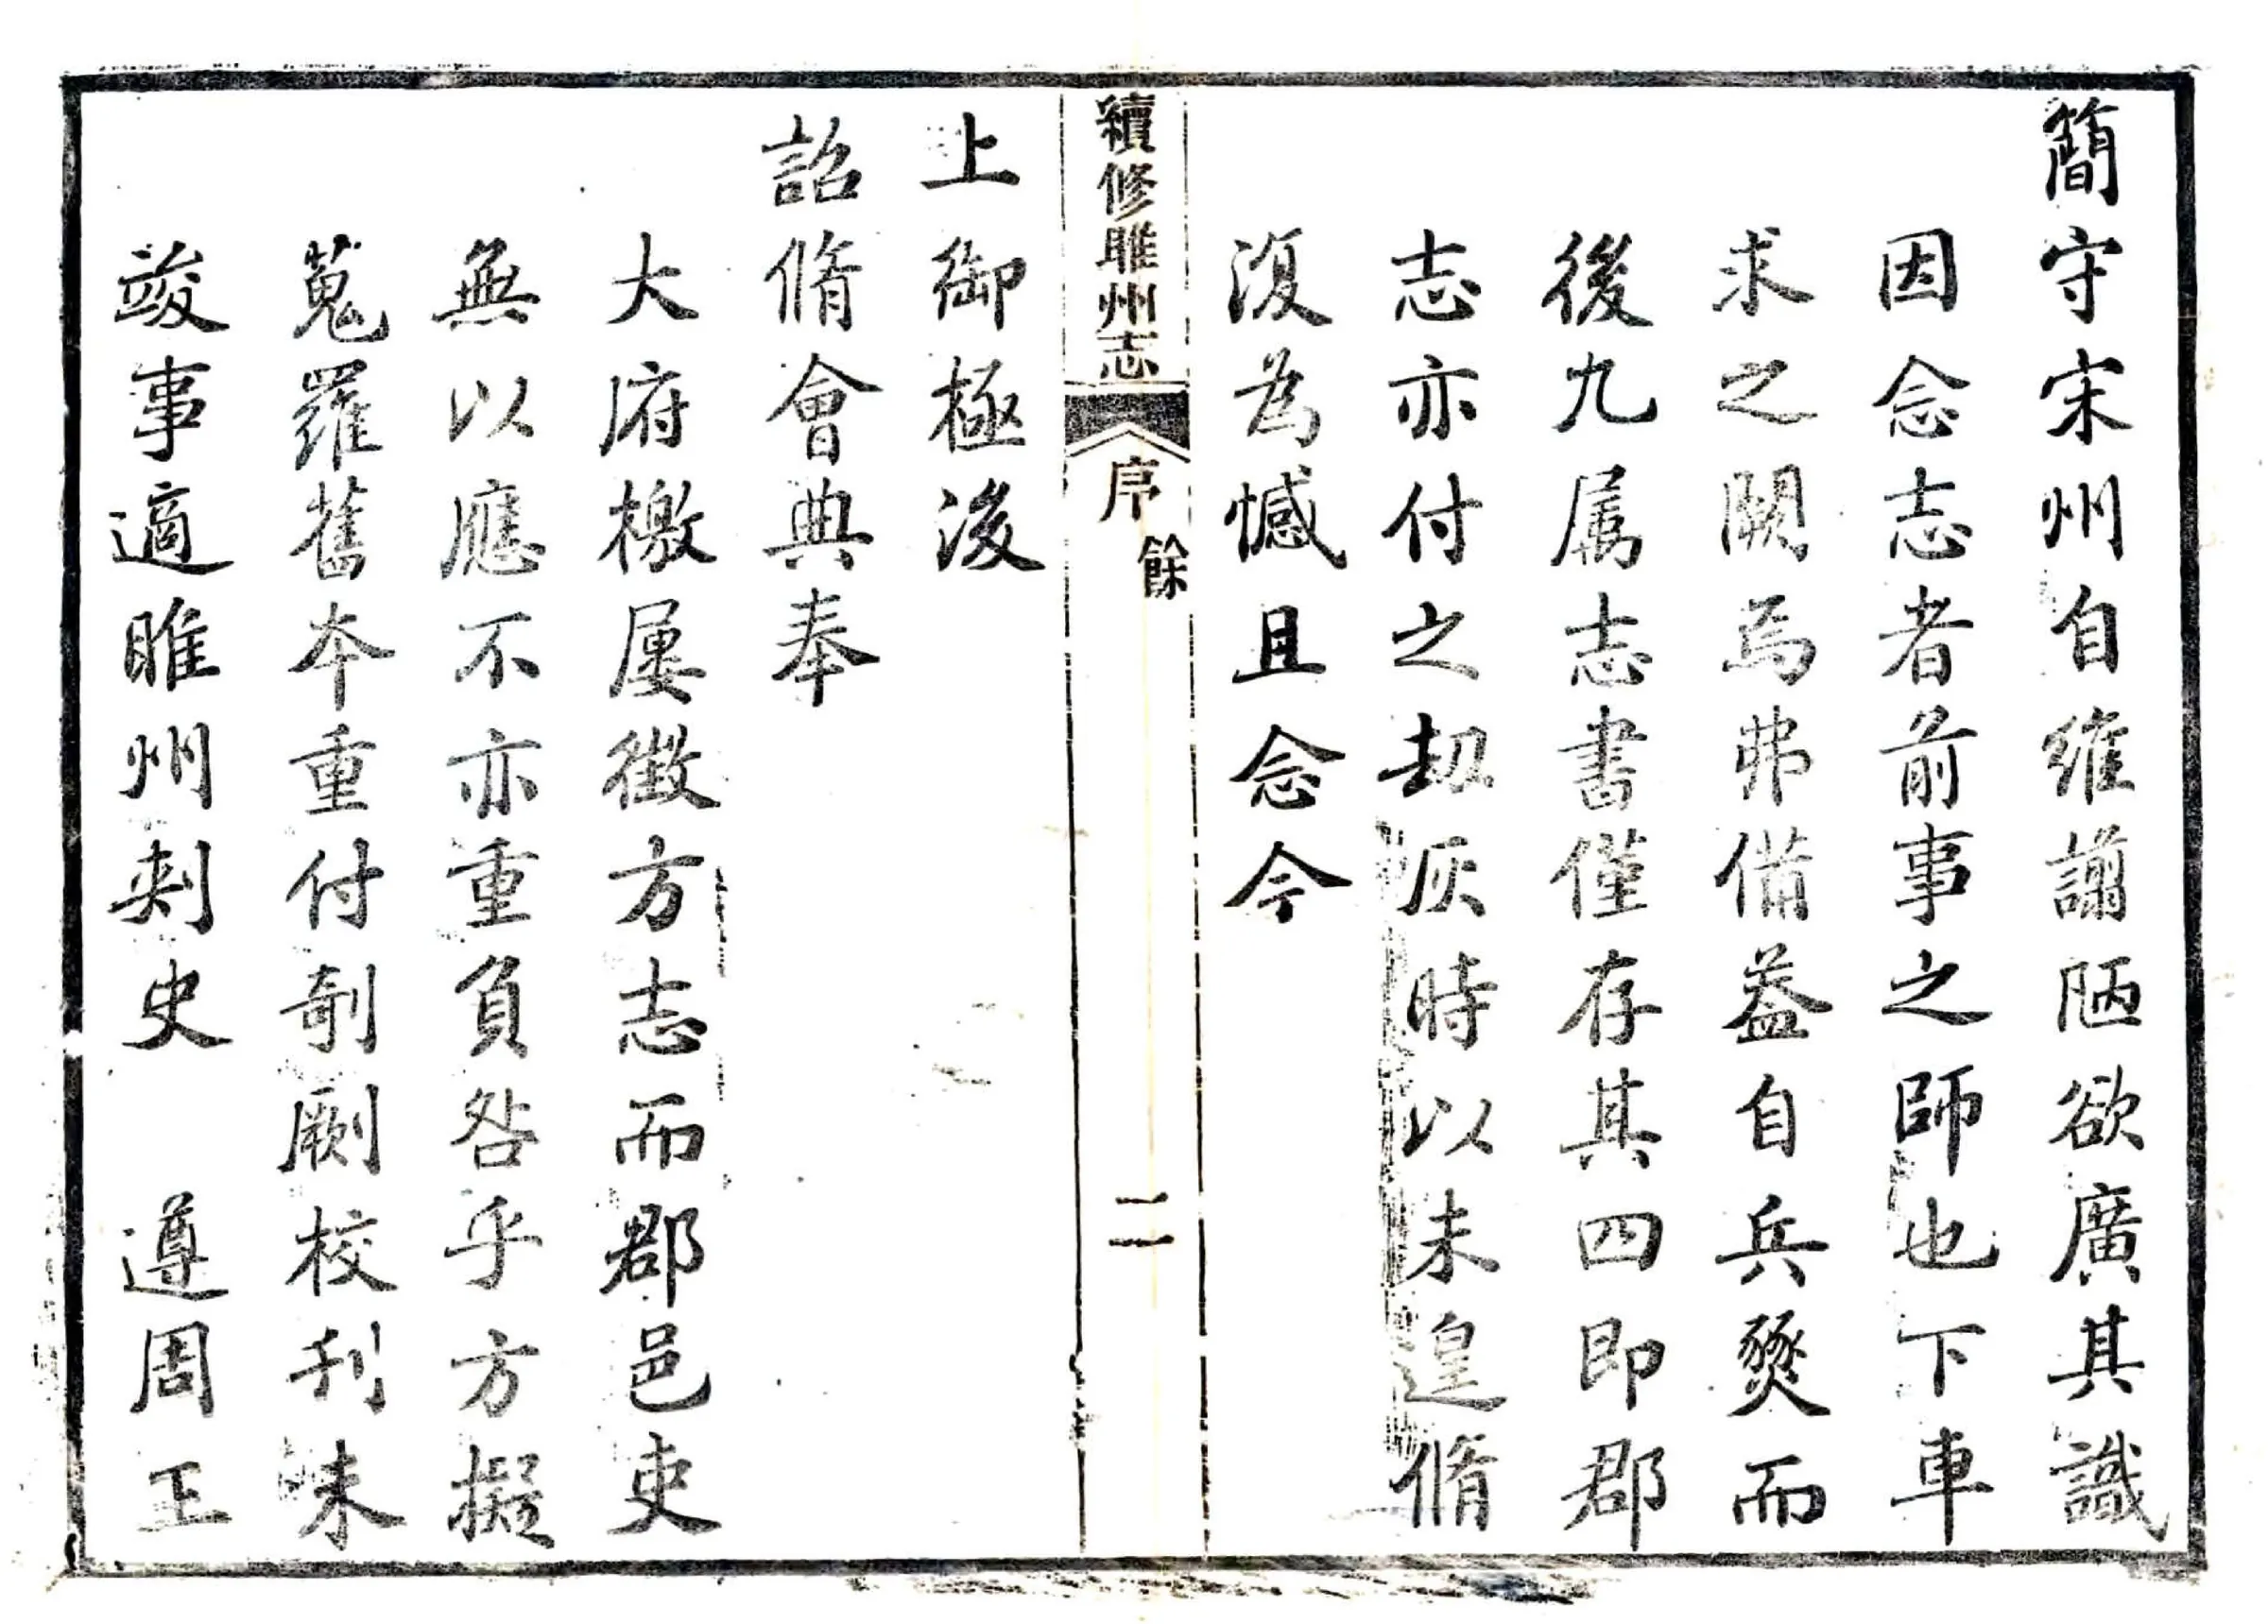 簡守宋州自維謭陋欲廣其識
因念志者前事之師也下車
求之闕焉弗備葢自兵燹而
後九属志書僅存其四即郡
志亦付之劫灰時以未遑脩
復為憾且念今
續修睢州志
序
餘
二
上御極後
詔脩會典奉
大府檄屡徴方志而郡邑吏
無以應不亦重負咎乎方擬
蒐羅舊本重付剞劂校刋未
竣事適睢州刾史 遵周王